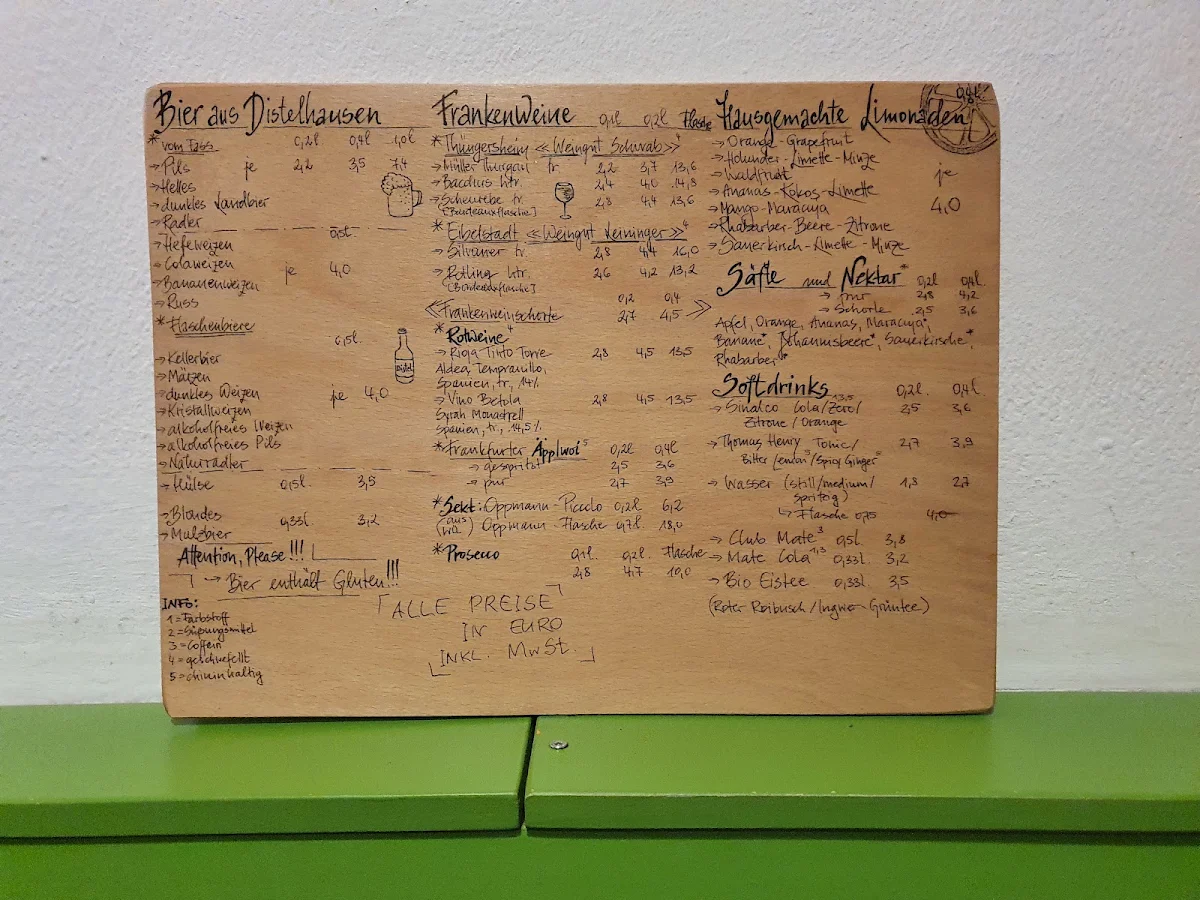 Bier aus Distelhausen
* vom Fass 0,2l 0,4l 1,0l
→ Pils je 2,2 3,5 7,4
→ Helles
→ dunkles Landbier
→ Radler
0,5l.
→ Hefeweizen
→ Colaweizen je 4,0
→ Bananenweizen
→ Russ
* Flaschenbiere
0,5l.
→ Kellerbier
→ Märzen
→ dunkles Weizen je 4,0
→ Kristallweizen
→ alkoholfreies Weizen
→ alkoholfreies Pils
→ Naturradler
→ Hülse 0,5l. 3,5
→ Blondes 0,33l. 3,2
→ Malzbier
Attention, Please!!!
→ Bier enthält Gluten!!!
INFO:
1 = Farbstoff
2 = Süßungsmittel
3 = Coffein
4 = geschwefelt
5 = chininhaltig
FrankenWeine 0,1l 0,2l Flasche
* Thüngersheim << Weingut Schwab >> 4
→ Müller Thurgau tr 2,2 3,7 13,6
→ Bacchus htr. 2,4 4,0 14,8
→ Scheurebe tr. 2,8 4,4 13,6
[Bordeauxflasche]
* Eibelstadt << Weingut Leininger >> 4
→ Silvaner tr. 2,8 4,4 16,0
→ Rotling htr. 2,6 4,2 13,2
[Bordeauxflasche]
0,2 0,4
<< Frankenweinschorle 2,7 4,5 >>
* Rotweine 4
→ Rioja Tinto Torre 2,8 4,5 13,5
Aldea, Tempranillo,
Spanien, tr, 14%
→ Vino Betola 2,8 4,5 13,5
Syrah Monastrell
Spanien, tr., 14,5%
* Frankfurter Äpplwoi 5 0,2l 0,4l
→ gespritzt 2,5 3,6
→ pur 2,7 3,9
* Sekt: Oppmann - Piccolo 0,2l 6,2
(aus WÜ) Oppmann - Flasche 0,7l. 18,0
* Prosecco 0,1l. 0,2l. Flasche
2,8 4,7 10,0
ALLE PREISE
IN EURO
INKL. MwSt.
Hausgemachte Limonaden 0,4l
→ Orange - Grapefruit
→ Holunder - Limette - Minze
→ Waldfrucht je
→ Ananas - Kokos - Limette
→ Mango - Maracuya 4,0
→ Rhabarber - Beere - Zitrone
→ Sauerkirsch - Limette - Minze
Säfte und Nektar* 0,2l 0,4l.
→ pur 2,8 4,2
→ Schorle 2,5 3,6
Apfel, Orange, Ananas, Maracuya*,
Banane*, Johannisbeere*, Sauerkirsche*,
Rhabarber*
Softdrinks 0,2l. 0,4l.
→ Sinalco Cola/Zero/ 2,5 3,6
Zitrone / Orange
→ Thomas Henry Tonic/ 2,7 3,9
Bitter Lemon 5/Spicy Ginger
→ Wasser (still/medium/ 1,8 2,7
spritzig)
↳ Flasche 0,75 4,0
→ Club Mate 3 0,5l. 3,8
→ Mate Cola 1,3 0,33l. 3,2
→ Bio Eistee 0,33l. 3,5
(Roter Roibusch / Ingwer - Grüntee)